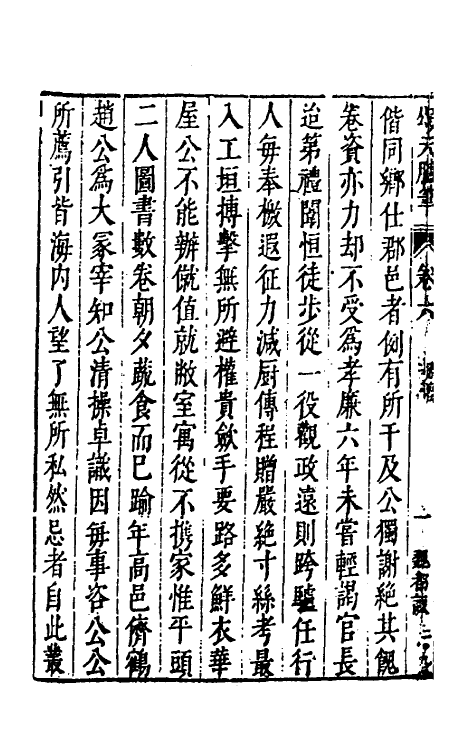 頌天臚筆 卷六 一
偕同鄉仕郡邑者例有所干及公獨謝絕其餽
卷資亦力却不受爲孝廉六年未嘗輕謁官長
迨第禮闈恒徒步從一役觀政遠則跨驢任行
人每奉檄遐征力減厨傳程贈嚴絕寸絲考最
入工垣搏擊無所避權貴歛手要路多鮮衣華
屋公不能辦僦值就敝室寓從不携家惟平頭
二人圖書數卷朝夕蔬食而已踰年高邑儕鶴
趙公爲大冢宰知公清操卓識因每事咨公公
所薦引皆海内人望了無所私然忌者自此叢